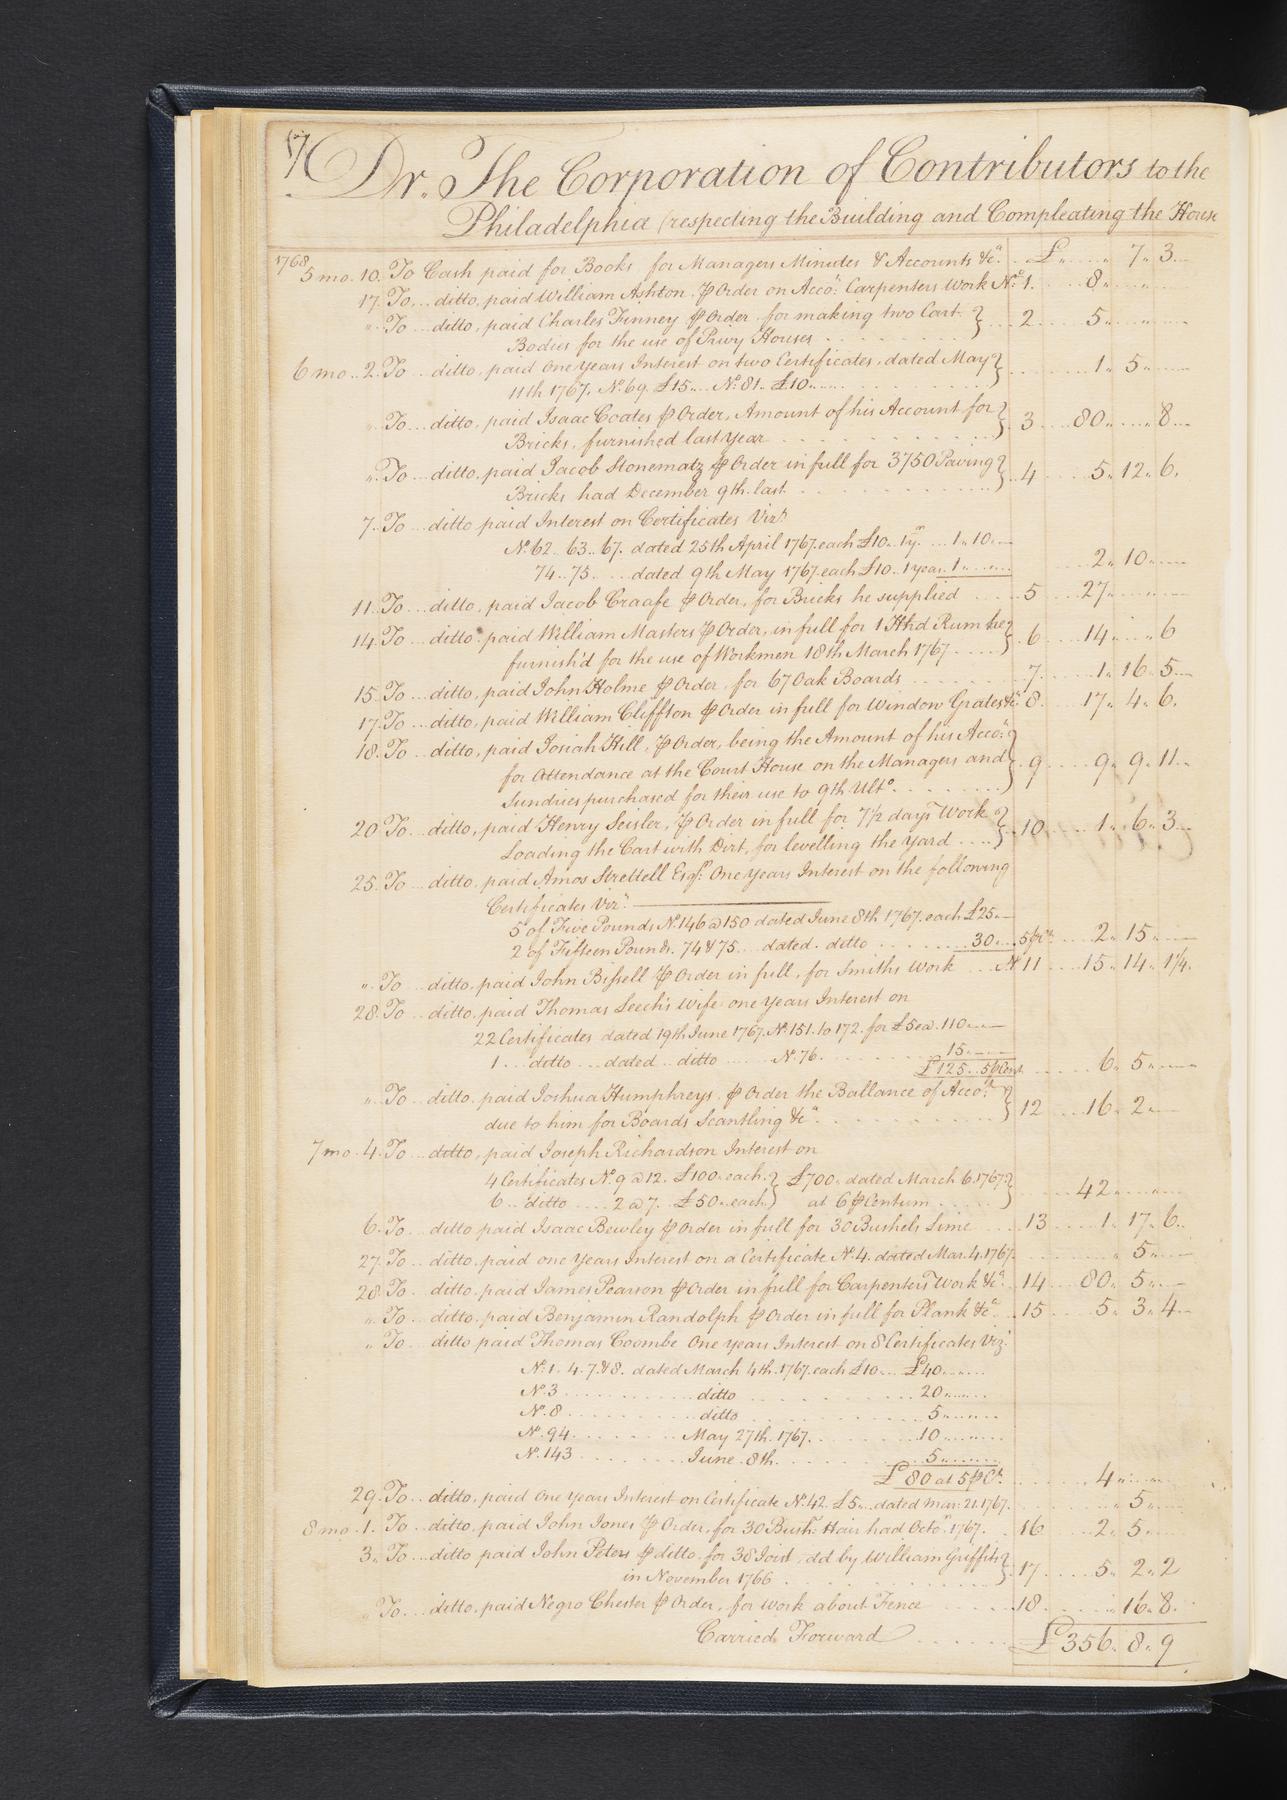 Dr. The Corporation of Contributors to the
Philadelphia (respecting the Building and Compleating the House
1768
5 mo. 10. To Cash paid for Books for Managers Minutes & Accounts &ca. £ " 7 " 3
17. To ditto, paid William Ashton, ⅌ Order on Acco.t Carpenters Work No. 1. 8 "
" To ditto, paid Charles Finney ⅌ Order for making two Cart } 2 5 "
Bodies for the use of Privy Houses
6 mo. 2. To ditto, paid One years Interest on two Certificates, dated May } 1 " 5 "
11th 1767, No. 69. £15 " No. 81. £10 "
" To ditto, paid Isaac Coates ⅌ Order, Amount of his Account for } 3 80 " " 8
Bricks, furnished last year
" To ditto, paid Jacob Stonematz ⅌ Order in full for 3750 Paving } 4 5 " 12 " 6.
Bricks had December 9th last
7. To ditto paid Interest on Certificates Vizt.
No. 62. 63. 67. dated 25th April 1767. each £10. 1 yr. 1 " 10 "
74. 75. dated 9th May 1767. each £10. 1 year. 1 " 2 " 10 "
11. To ditto, paid Jacob Graafe ⅌ Order, for Bricks he supplied 5 27 "
14. To ditto, paid William Masters ⅌ Order, in full for 1 Hhd Rum he } 6 14 " " 6
furnish'd for the use of Workmen 18th March 1767
15. To ditto, paid John Holme ⅌ Order, for 67 Oak Boards 7 1 " 16 " 5
17. To ditto, paid William Cliffton ⅌ Order in full for Window Grates &c. 8. 17 " 4 " 6.
18. To ditto, paid Josiah Hill, ⅌ Order, being the Amount of his Acco.t }
for Attendance at the Court House on the Managers and } 9 9 " 9 " 11
Sundries purchased for their use to 9th Ulto.
20. To ditto, paid Henry Seisler, ⅌ Order in full for 7½ days Work } 10 1 " 6 " 3
Loading the Cart with Dirt, for levelling the Yard
25. To ditto, paid Amos Strettell Esqr. One years Interest on the following
Certificates Vizt.
5 of Five Pounds No. 146 @ 150 dated June 8th 1767. each £25 "
2 of Fifteen Pounds. 74 & 75 dated ditto 30 " 5 ⅌ Ct. 2 " 15 "
" To ditto, paid John Bissell ⅌ Order in full, for Smiths Work No. 11 15 " 14 " 1¼.
28. To ditto, paid Thomas Leech's Wife one years Interest on
22 Certificates dated 19th June 1767. No. 151. to 172. for £5 ea. 110 "
1 ditto dated ditto No. 76. 15 "
£125 5 ⅌ Cent. 6 " 5 "
" To ditto, paid Joshua Humphreys, ⅌ Order the Ballance of Acco.t } 12 16 " 2 "
due to him for Boards Scantling &ca.
7 mo. 4. To ditto, paid Joseph Richardson Interest on
4 Certificates No. 9 @ 12. £100. each } £700. dated March 6. 1767 }
6 ditto 2 @ 7. £50. each } at 6 ⅌ Centum 42 "
6. To ditto paid Isaac Bewley ⅌ Order in full for 30 Bushels Lime 13 1 " 17 " 6.
27. To ditto, paid one years Interest on a Certificate No. 4. dated Mar. 4. 1767. " 5 "
28. To ditto, paid James Pearson ⅌ Order in full for Carpenters Work &ca. 14 80 " 5 "
" To ditto, paid Benjamin Randolph ⅌ Order in full for Plank &ca. 15 5 " 3 " 4
" To ditto paid Thomas Coombe One years Interest on 8 Certificates Vizt.
No. 1. 4. 7. & 8. dated March 4th 1767. each £10 £40 "
No. 3 ditto 20 "
No. 8 ditto 5 "
No. 94 May 27th 1767. 10 "
No. 143 June 8th. 5 "
£80 at 5 ⅌ Ct. 4 "
29. To ditto, paid One years Interest on Certificate No. 42. £5 dated Mar. 21. 1767. " 5 "
8 mo. 1. To ditto, paid John Jones ⅌ Order, for 30 Bush. Hair had Octor. 1767. 16 2 " 5
3. To ditto paid John Peters ⅌ ditto, for 38 Joist, dd by William Griffith } 17 5 " 2 " 2
in November 1766
" To ditto, paid Negro Chester ⅌ Order, for Work about Fence 18 " 16 " 8
Carried Forward £356 " 8 " 9